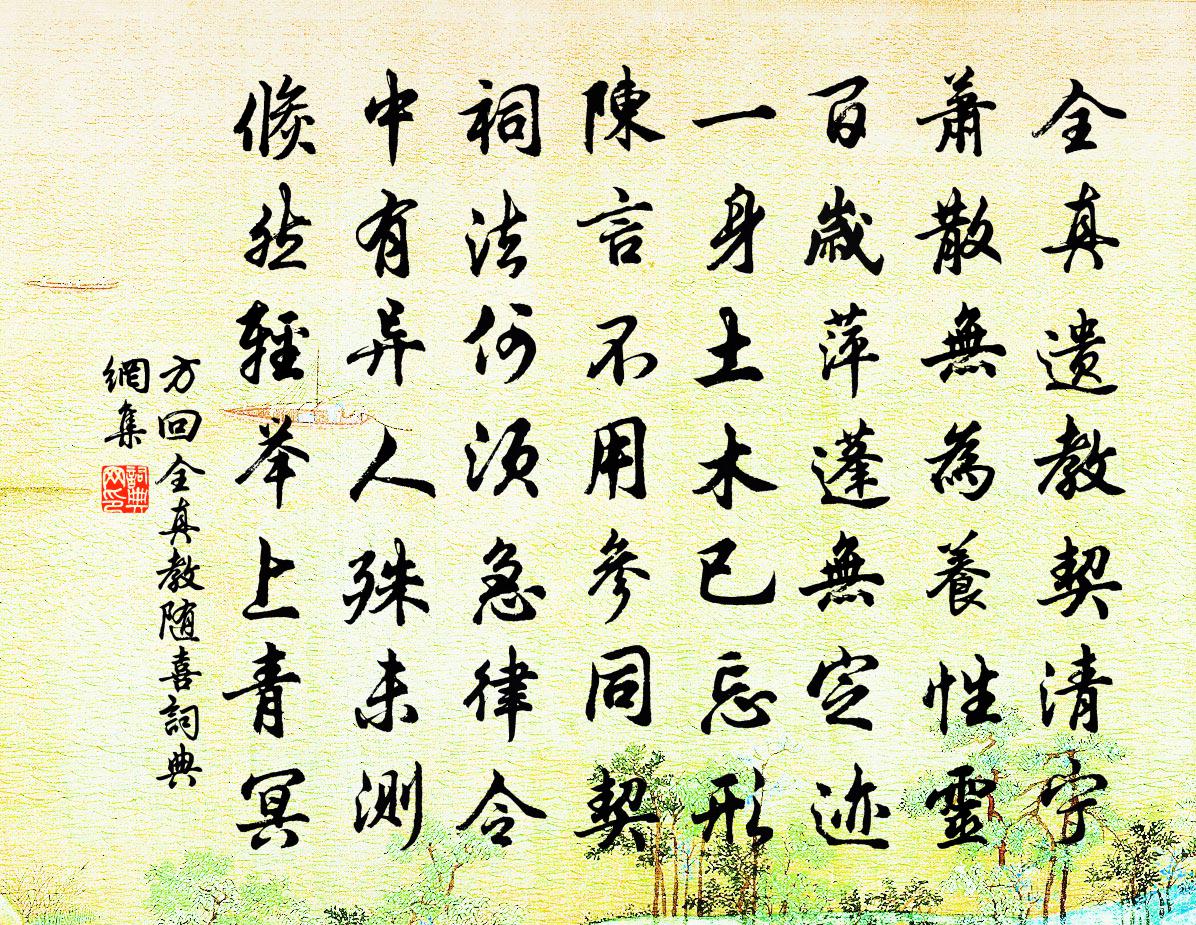 全真遗教契清宁
萧散無為養性靈
百歲萍蓬無定迹
一身土木已忘形
陳言不用參同契
祠法何须急律令
中有异人殊未測
倏然輕举上青冥
方回全真教随喜詞典
網集
詞典网印